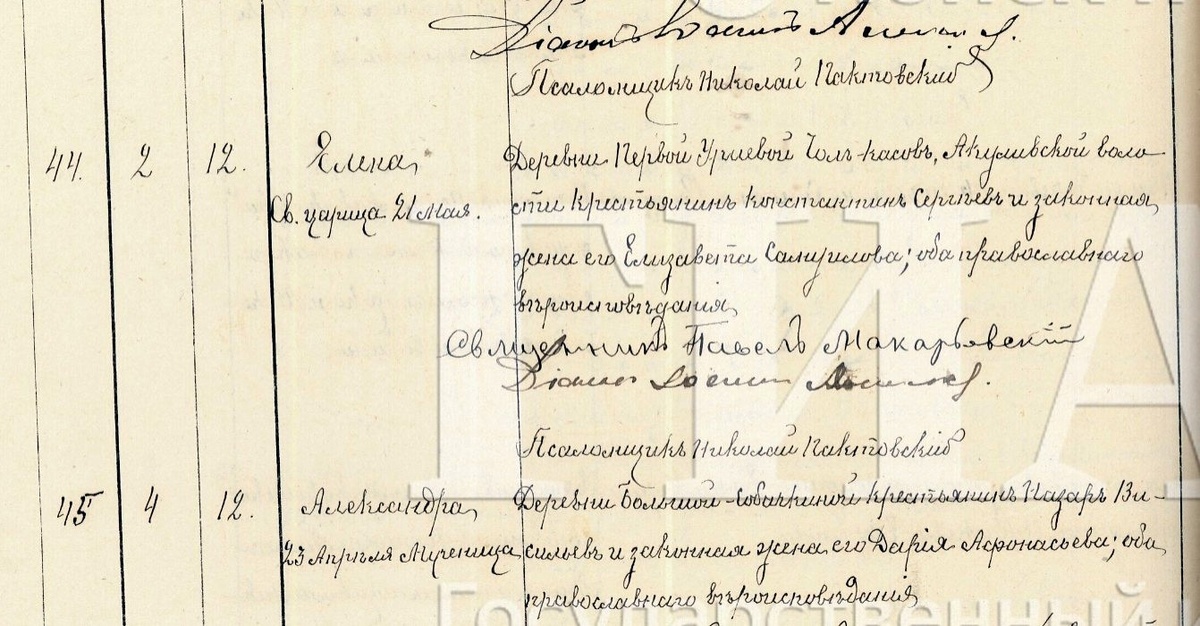 Діаконъ
Псаломщикъ Николай Пактовскій
44. 2 12. Елена, Деревни Первой Уриевой Толъ-касовъ, Акулевской воло-
Св. царица 21 Мая. сти крестьянинъ Константинъ Сергѣевъ и законная
жена его Елизавета Самуилова; оба православнаго
вѣроисповѣданія
Священникъ Павелъ Макарьевскій
Діаконъ
Псаломщикъ Николай Пактовскій
45 4 12. Александра, Деревни Большой-Собачкиной крестьянинъ Назаръ Ва-
23 Апрѣля Мученица сильевъ и законная жена его Дарія Афонасьева; оба
православнаго вѣроисповѣданія
ГИА
Государственный